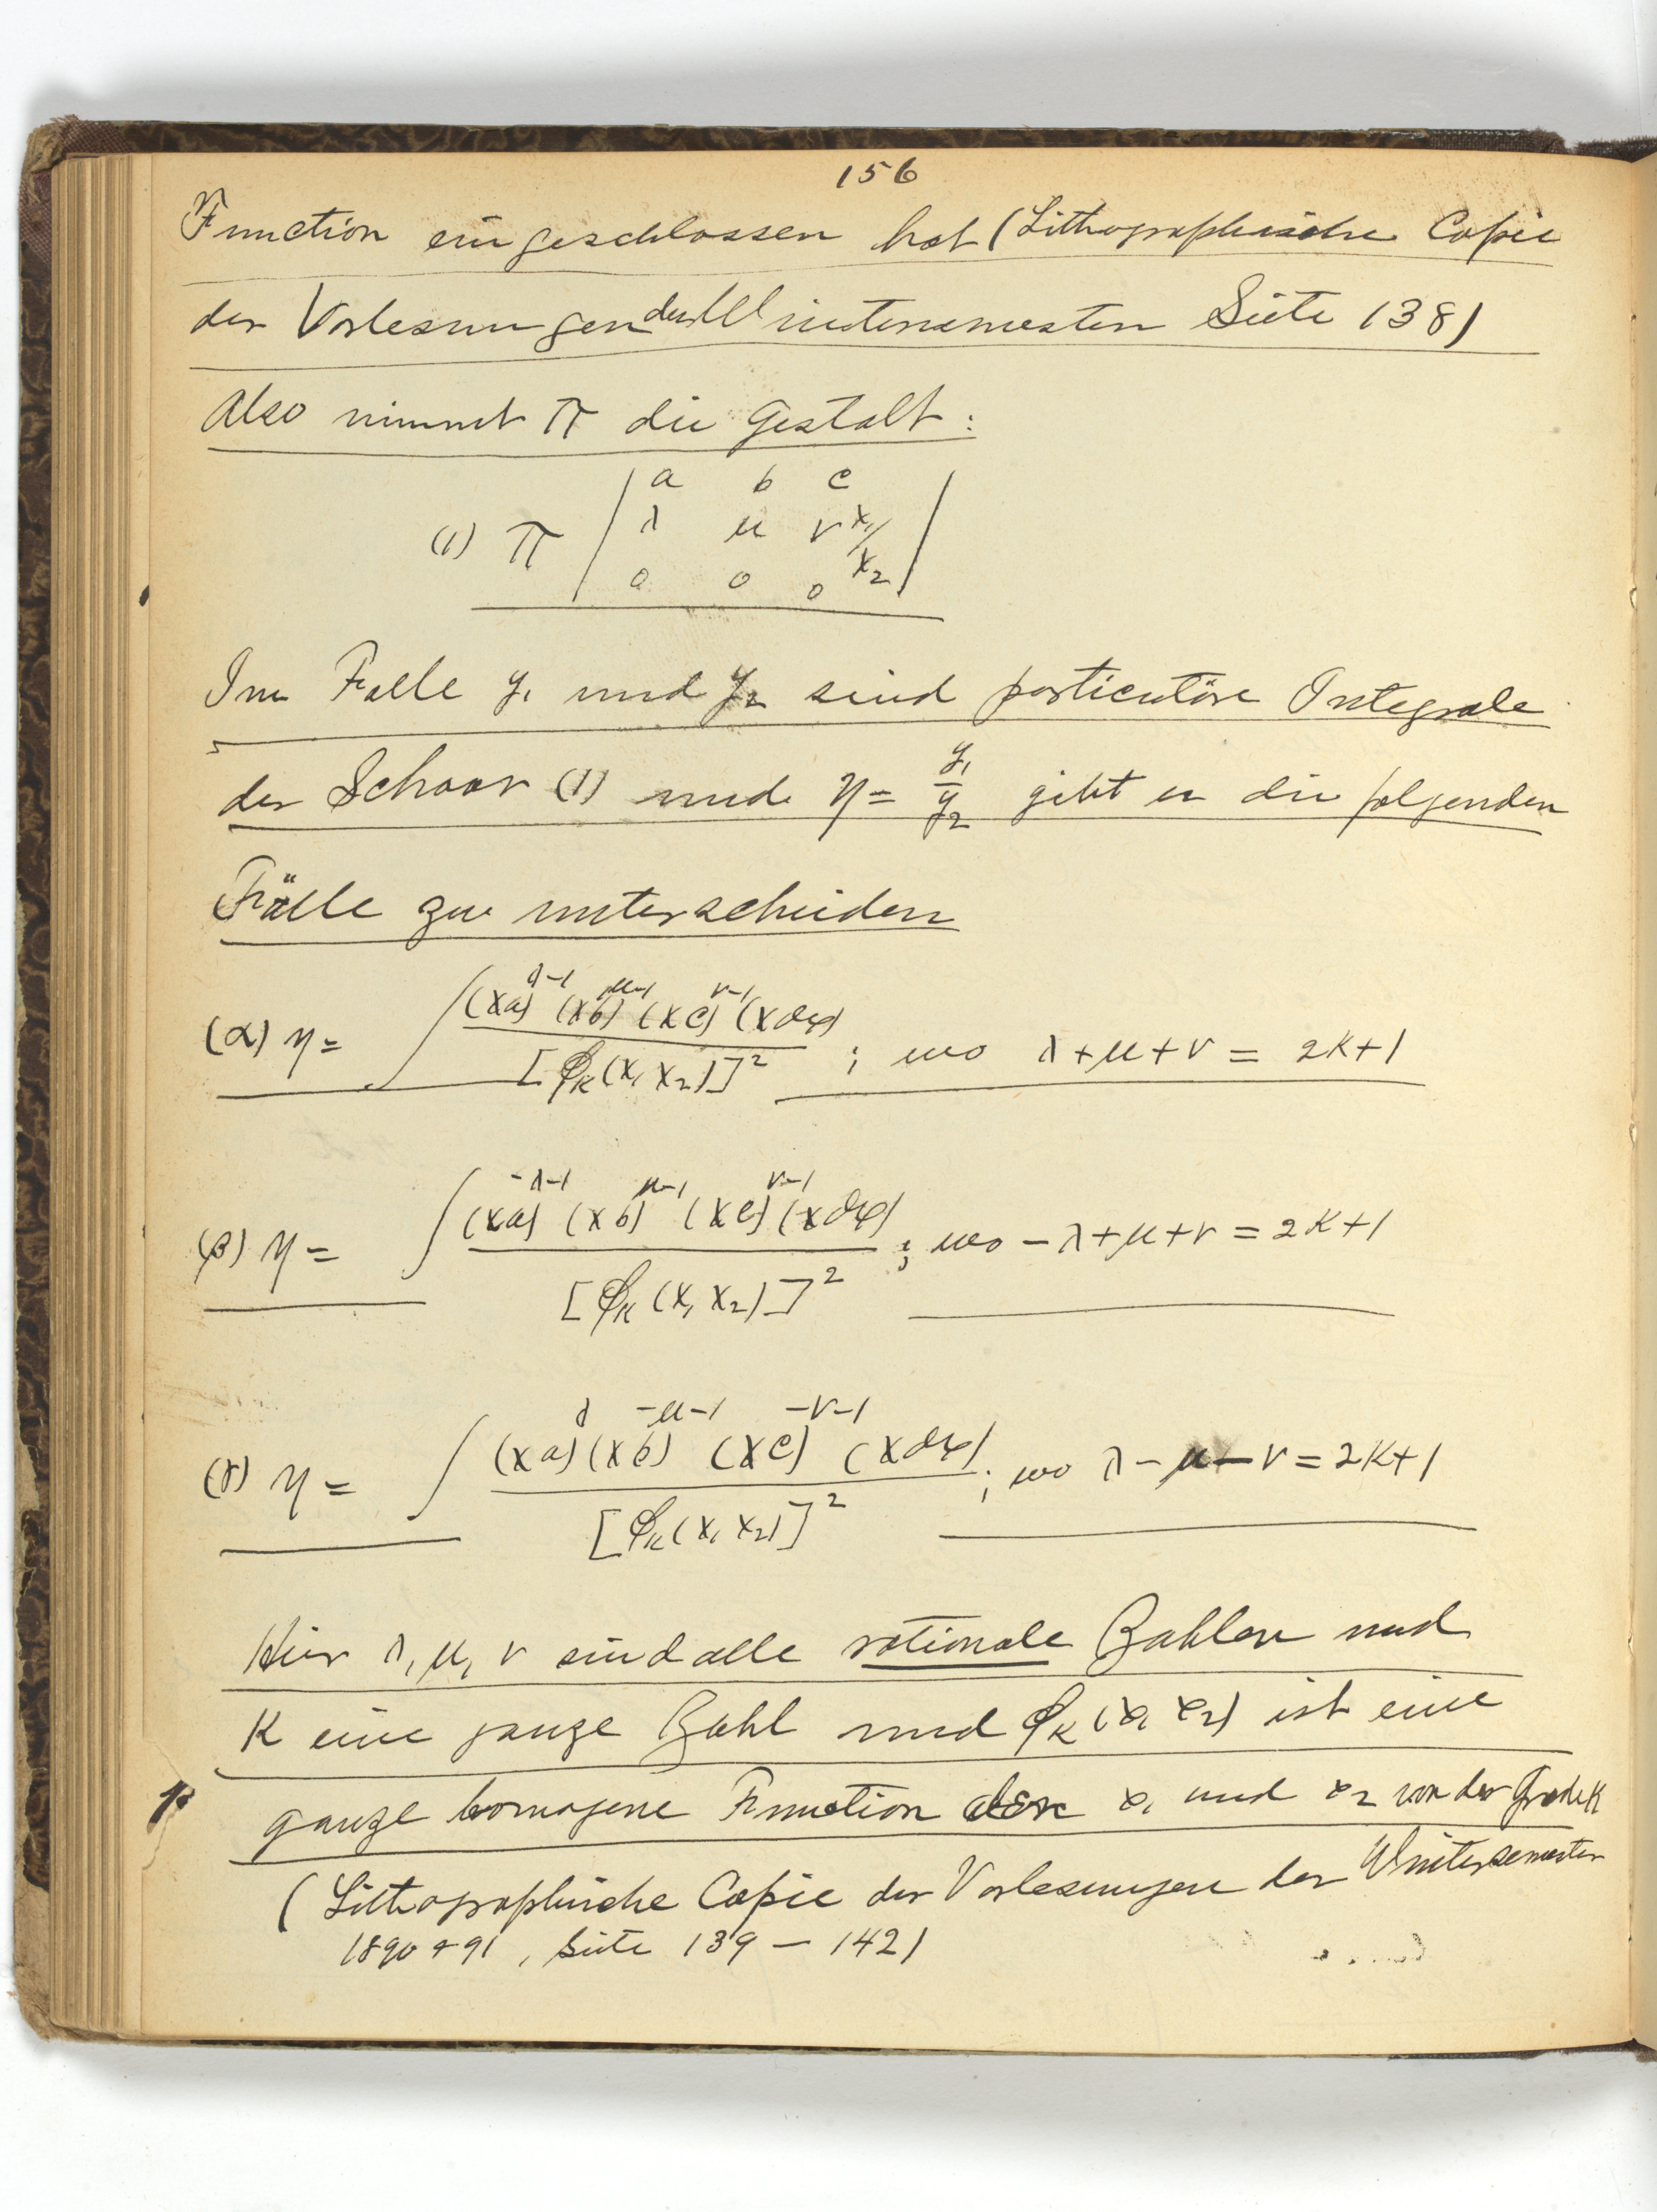 156
Function eingeschlossen hat (Lithographische Copie
der Vorlesungen des Wintersemesters Seite 138)
Also nimmt π die Gestalt:
a b c
(1) π | λ μ ν x₁/x₂ |
0 0 0
Im Falle y₁ und y₂ sind particuläre Integrale
der Schaar (1) und η = y₁/y₂ gibt es die folgenden
Fälle zu unterscheiden
(α) η = ∫ (xa)^{λ-1} (xb)^{μ-1} (xc)^{ν-1} (xdx) / [φ_K(x₁ x₂)]² ; wo λ+μ+ν = 2K+1
(β) η = ∫ (xa)^{-λ-1} (xb)^{μ-1} (xc)^{ν-1} (xdx) / [φ_K(x₁ x₂)]² ; wo -λ+μ+ν = 2K+1
(γ) η = ∫ (xa)^{λ} (xb)^{-μ-1} (xc)^{-ν-1} (xdx) / [φ_K(x₁ x₂)]² ; wo λ-μ-ν = 2K+1
Hier λ, μ, ν sind alle rationale Zahlen und
K eine ganze Zahl und φ_K(x₁ x₂) ist eine
ganze homogene Function x₁ und x₂ von der Grade K
(Lithographische Copie der Vorlesungen der Wintersemester
1890 + 91, Seite 139 — 142)